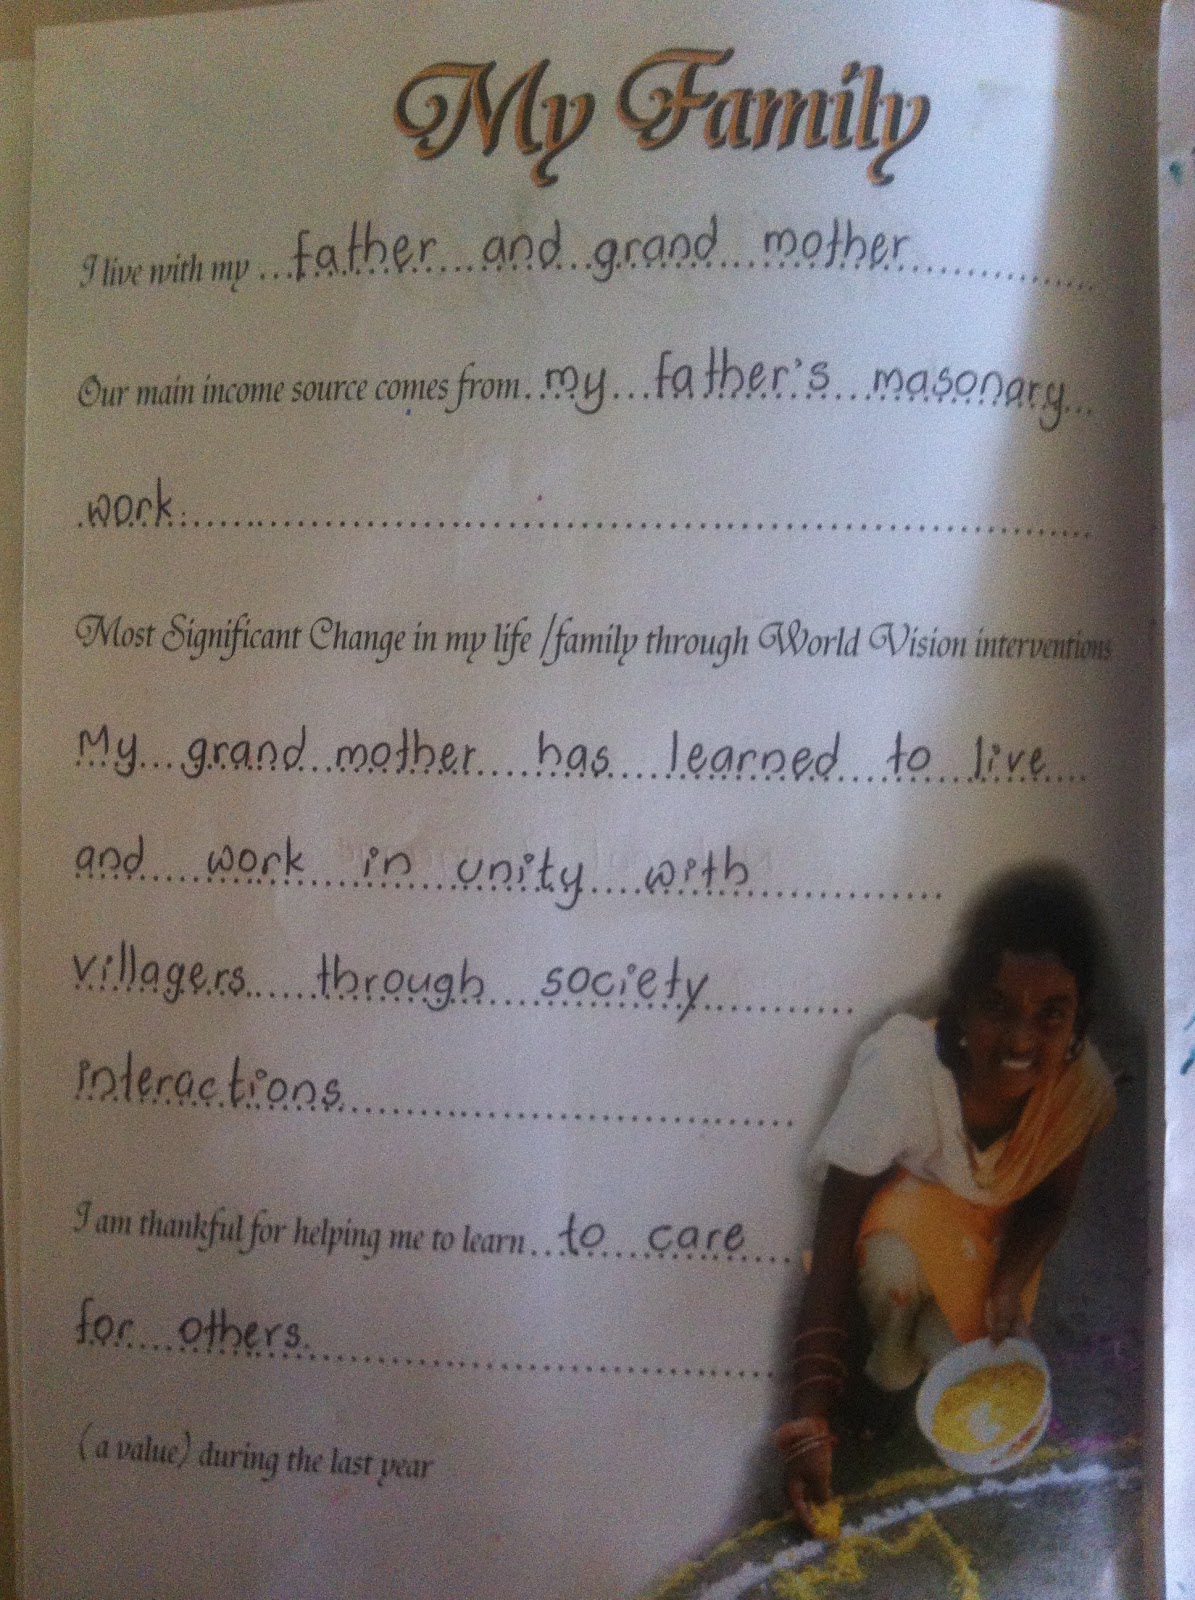 My Family
I live with my father and grand mother
Our main income source comes from my father's masonary
work.
Most Significant Change in my life /family through World Vision interventions
My grand mother has learned to live
and work in unity with
villagers through society
interactions
I am thankful for helping me to learn to care
for others.
(a value) during the last year